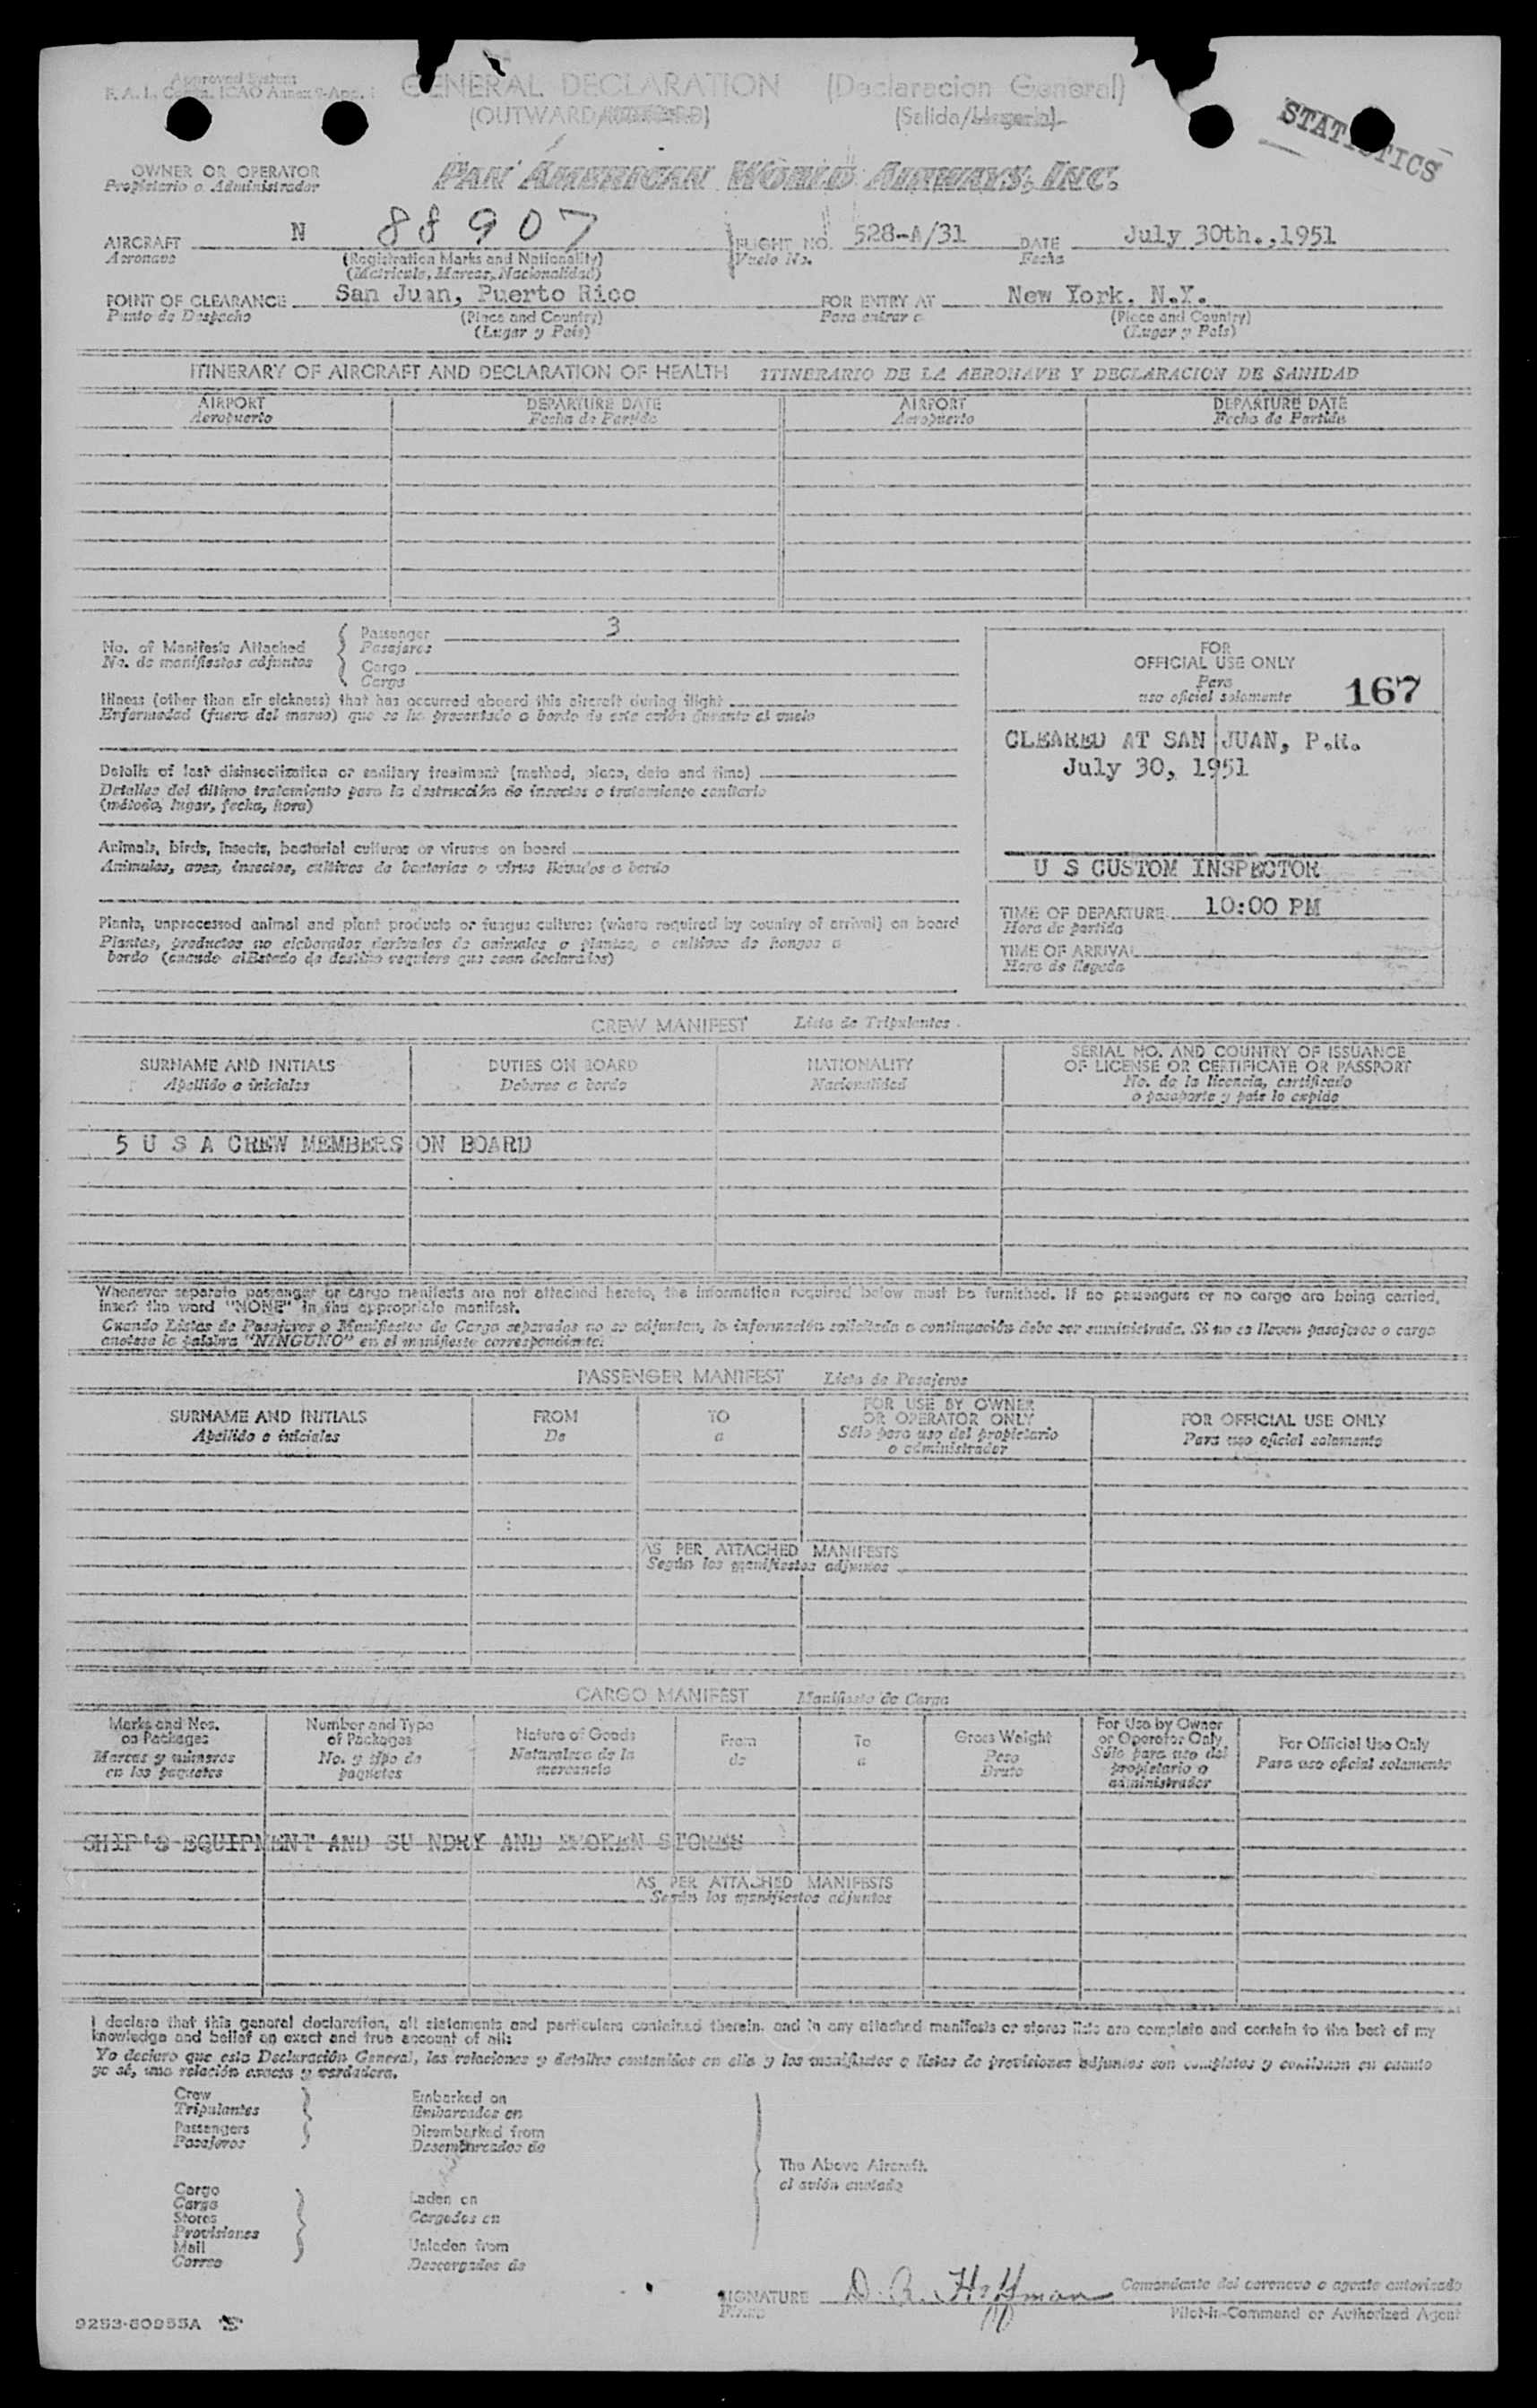 Approved System
F. A. L. Comm. ICAO Annex 9-App. 1
GENERAL DECLARATION (Declaracion General)
(OUTWARD/INWARD) (Salida/Llegada)
STATISTICS
OWNER OR OPERATOR
Propietario o Administrador
PAN AMERICAN WORLD AIRWAYS, INC.
AIRCRAFT N 88907 FLIGHT NO. 528-A/31 DATE July 30th.,1951
Aeronave (Registration Marks and Nationality) Vuelo No. Fecha
(Matricula, Marcas, Nacionalidad)
POINT OF CLEARANCE San Juan, Puerto Rico FOR ENTRY AT New York. N.Y.
Punto de Despacho (Place and Country) Para entrar a (Place and Country)
(Lugar y País) (Lugar y País)
ITINERARY OF AIRCRAFT AND DECLARATION OF HEALTH ITINERARIO DE LA AERONAVE Y DECLARACION DE SANIDAD
AIRPORT DEPARTURE DATE AIRPORT DEPARTURE DATE
Aeropuerto Fecha de Partida Aeropuerto Fecha de Partida
No. of Manifests Attached Passenger 3
No. de manifiestos adjuntos Pasajeros
Cargo
Carga
Illness (other than air sickness) that has occurred aboard this aircraft during flight
Enfermedad (fuera del mareo) que se ha presentado a bordo de este avión durante el vuelo
Details of last disinsectization or sanitary treatment (method, place, date and time)
Detalles del último tratamiento para la destrucción de insectos o tratamiento sanitario
(método, lugar, fecha, hora)
Animals, birds, insects, bacterial cultures or viruses on board
Animales, aves, insectos, cultivos de bacterias o virus llevados a bordo
Plants, unprocessed animal and plant products or fungus cultures (where required by country of arrival) on board
Plantas, productos no elaborados derivados de animales o plantas, o cultivos de hongos a
bordo (cuando el Estado de destino requiere que sean declarados)
FOR
OFFICIAL USE ONLY
Para
uso oficial solamente 167
CLEARED AT SAN JUAN, P.R.
July 30, 1951
U S CUSTOM INSPECTOR
TIME OF DEPARTURE 10:00 PM
Hora de partida
TIME OF ARRIVAL
Hora de llegada
CREW MANIFEST Lista de Tripulantes
SURNAME AND INITIALS DUTIES ON BOARD NATIONALITY SERIAL NO. AND COUNTRY OF ISSUANCE
OF LICENSE OR CERTIFICATE OR PASSPORT
Apellido e iniciales Deberes a bordo Nacionalidad No. de la licencia, certificado
o pasaporte y país lo expide
5 U S A CREW MEMBERS ON BOARD
Whenever separate passenger or cargo manifests are not attached hereto, the information required below must be furnished. If no passengers or no cargo are being carried,
insert the word "NONE" in the appropriate manifest.
Cuando Listas de Pasajeros o Manifiestos de Carga separados no se adjuntan, la información solicitada a continuación debe ser suministrada. Si no se llevan pasajeros o carga
anótese la palabra "NINGUNO" en el manifiesto correspondiente.
PASSENGER MANIFEST Lista de Pasajeros
SURNAME AND INITIALS FROM TO FOR USE BY OWNER
OR OPERATOR ONLY FOR OFFICIAL USE ONLY
Apellido e iniciales De a Sólo para uso del propietario
o administrador Para uso oficial solamente
AS PER ATTACHED MANIFESTS
Según los manifiestos adjuntos
CARGO MANIFEST Manifiesto de Carga
Marks and Nos.
on Packages
Marcas y números
en los paquetes
Number and Type
of Packages
No. y tipo de
paquetes
Nature of Goods
Naturaleza de la
mercancía
From
de
To
a
Gross Weight
Peso
Bruto
For Use by Owner
or Operator Only
Sólo para uso del
propietario o
administrador
For Official Use Only
Para uso oficial solamente
SHIP'S EQUIPMENT AND SU NDRY AND BROKEN STORES
AS PER ATTACHED MANIFESTS
Según los manifiestos adjuntos
I declare that this general declaration, all statements and particulars contained therein, and in any attached manifests or stores lists are complete and contain to the best of my
knowledge and belief an exact and true account of all:
Yo declaro que esta Declaración General, las relaciones y detalles contenidos en ella y los manifiestos o listas de provisiones adjuntos son completos y contienen en cuanto
yo sé, una relación exacta y verdadera.
Crew
Tripulantes
Passengers
Pasajeros
Embarked on
Embarcados en
Disembarked from
Desembarcados de
The Above Aircraft.
el avión anotado
Cargo
Carga
Stores
Provisiones
Mail
Correo
Laden on
Cargados en
Unladen from
Descargados de
SIGNATURE D. R. Hoffman Comandante del aeronave o agente autorizado
Firma Pilot-in-Command or Authorized Agent
9253-60955A S